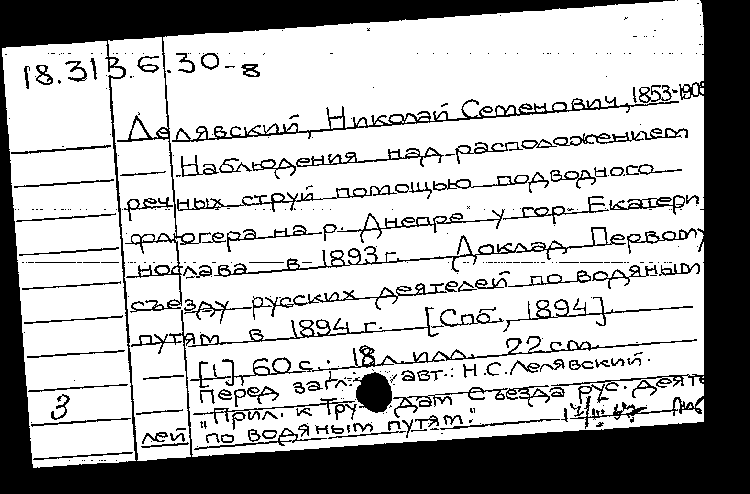 18.313.6.30-8
Лелявский, Николай Семенович, 1853-1905
Наблюдения над расположением
речных струй помощью подводного
флюгера на р. Днепре у гор. Екатери
нослава в 1893 г. Доклад Первому
съезду русских деятелей по водяным
путям в 1894 г. [Спб., 1894].
[1], 60 с.; 18 л. илл. 22 cm.
Перед загл. авт.: Н.С. Лелявский.
3 "Прил. к Трудам Съезда рус. деяте
лей по водяным путям."